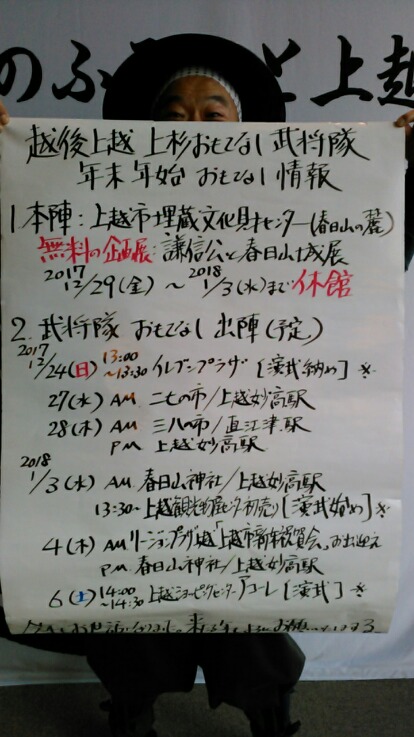 のふ と上越
越後上越 上杉おもてなし武将隊
年末年始 おもてなし情報
1.本陣:上越市埋蔵文化財センター(春日山の麓)
無料の企画展:謙信公と春日山城展
2017 12/29(金)～2018 1/3(水)まで休館
2.武将隊 おもてなし出陣(予定)
2017 12/24(日) 13:00～13:30 イレブンプラザ[演武納め]※
27(水) AM 二七の市/上越妙高駅
28(木) AM 三八の市/直江津駅
PM 上越妙高駅
2018
1/3(水) AM 春日山神社/上越妙高駅
13:30～上越観光物産センター初売り[演武始め]※
4(木) AM リージョンプラザ上越「上越市新年祝賀会」お出迎え
PM 春日山神社/上越妙高駅
6(土) 14:00～14:30 上越ショッピングセンターアコーレ[演武]※